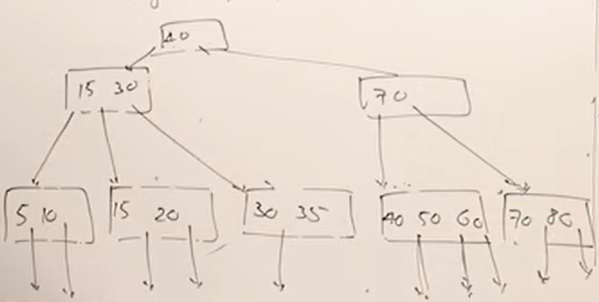 40
15 30 70
5 10 15 20 30 35 40 50 60 70 80